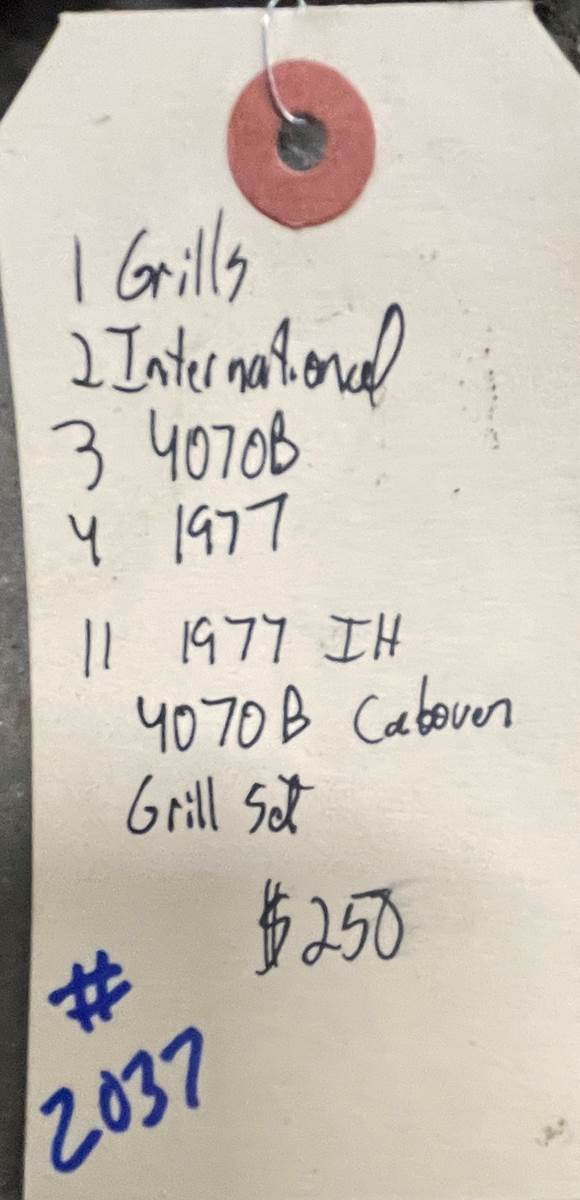 1 Grills
2 International
3 4070B
4 1977
11 1977 IH
4070B Cabover
Grill Set
$250
#
2037